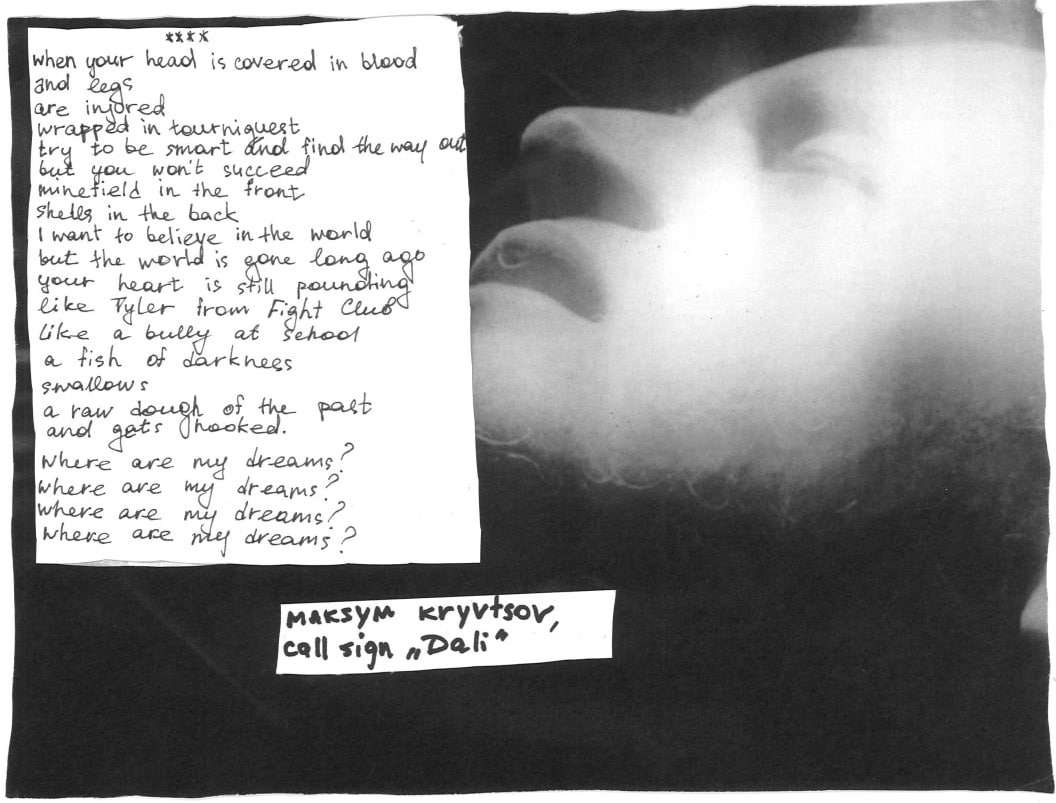 ****
when your head is covered in blood
and legs
are injored
wrapped in tourniquest
try to be smart and find the way out
but you won't succeed
minefield in the front
shells in the back
I want to believe in the world
but the world is gone long ago
your heart is still pounding
like Tyler from Fight Club
like a bully at school
a fish of darkness
swallows
a raw dough of the past
and gets hooked.
Where are my dreams?
where are my dreams?
where are my dreams?
Where are my dreams?
MAKSYM Kryvtsov,
call sign „Dali“